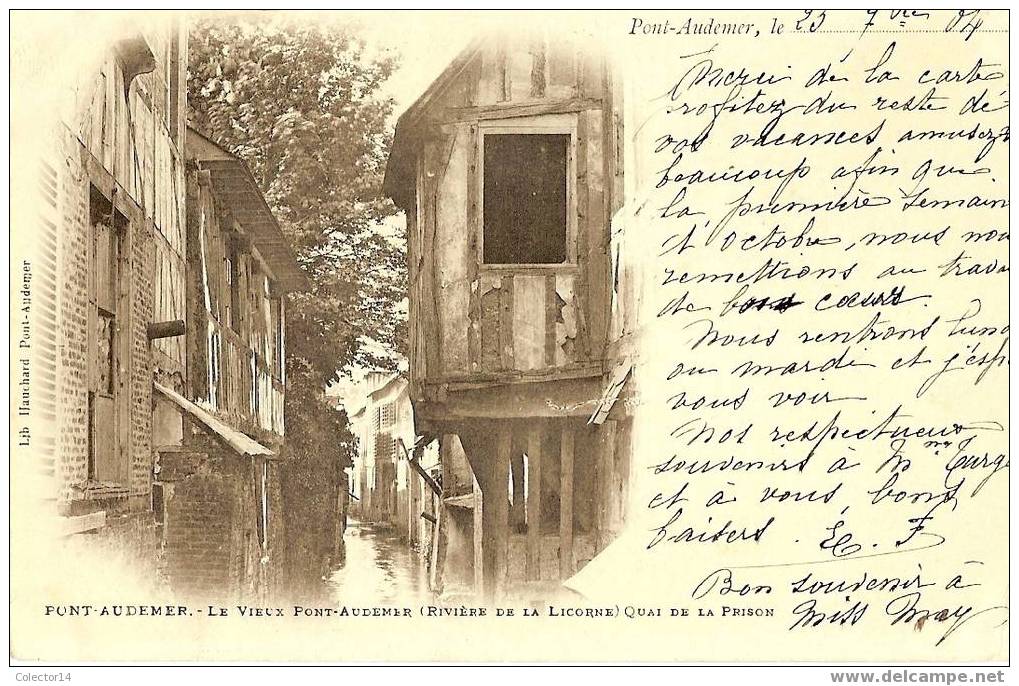 Pont-Audemer, le 25 7bre 04
Mercii de la carte
rofitez du reste dé
vos vacances amusez
beaucoup afin que
la première semain
d'Octobre, nous nou
remettions au trava
de cœurs.
Nous rentrons lund
ou mardi et j'esp
vous voir
Nos respectueux
souvenirs à Mme Turge
et à vous, bons
baisers. E. F
Bon souvenir à
Miss May
Lib Hauchard Pont-Audemer
PONT-AUDEMER.-LE VIEUX PONT-AUDEMER (RIVIÈRE DE LA LICORNE) QUAI DE LA PRISON
Colector14
www.delcampe.net